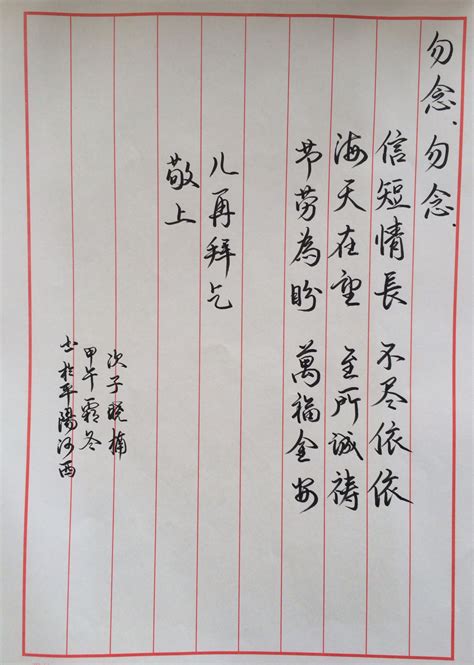 勿念、勿念.
信短情長 不尽依依
海天在望 至所诚祷
节劳為盼 萬福金安
儿再拜乞
敬上
次子晓楠
甲午霜冬
书於平陽河西